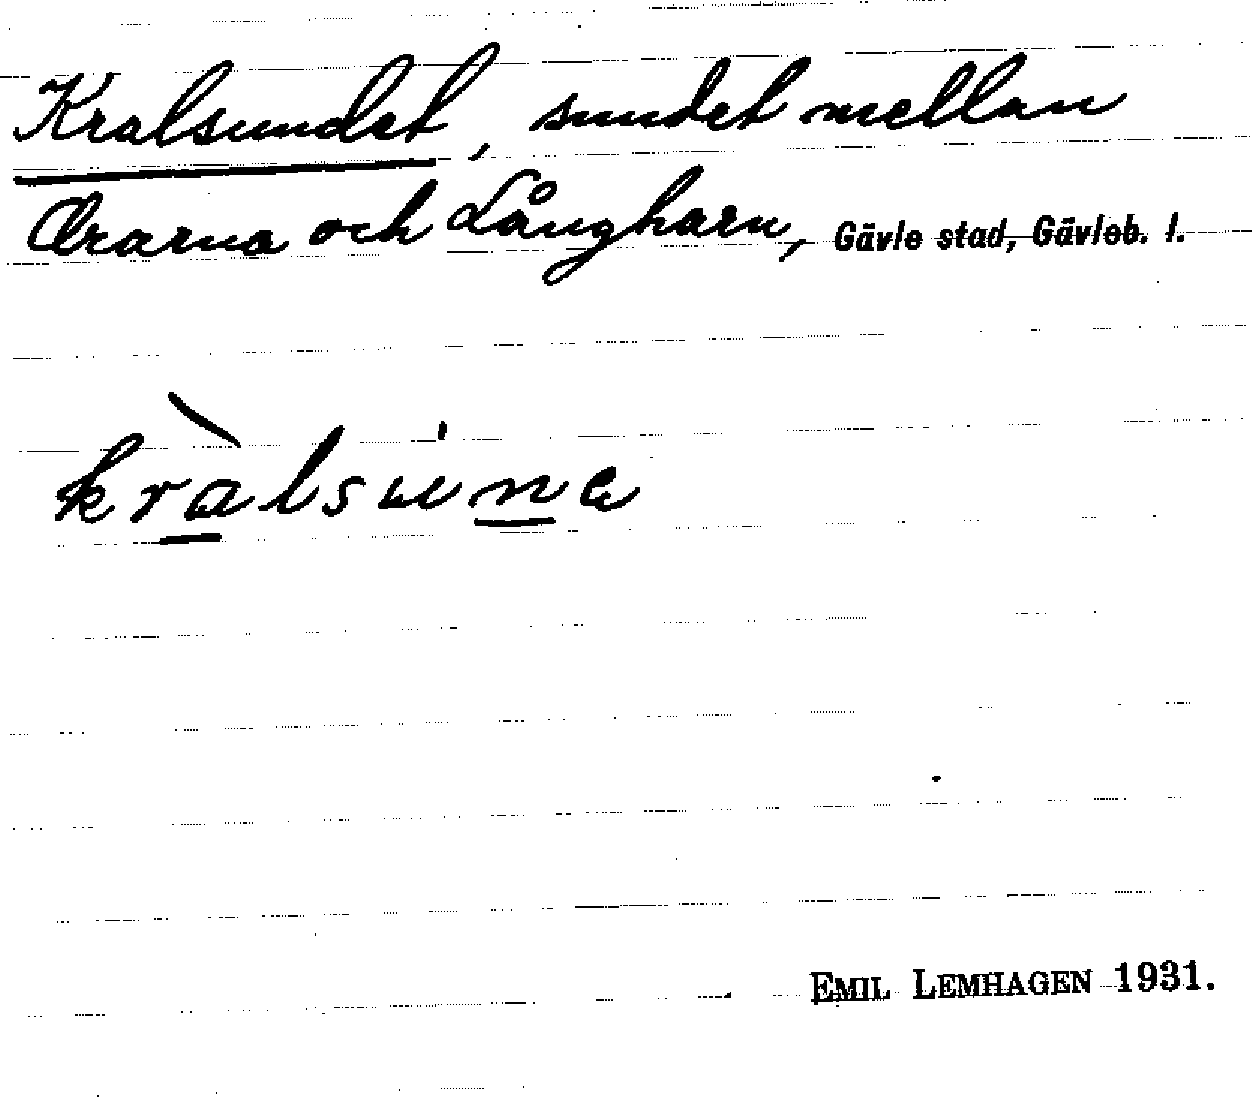 Kralsundet, sundet mellan
Orarna och Långharn, Gävle stad, Gävleb. l.
kràlsuna
EMIL LEMHAGEN 1931.